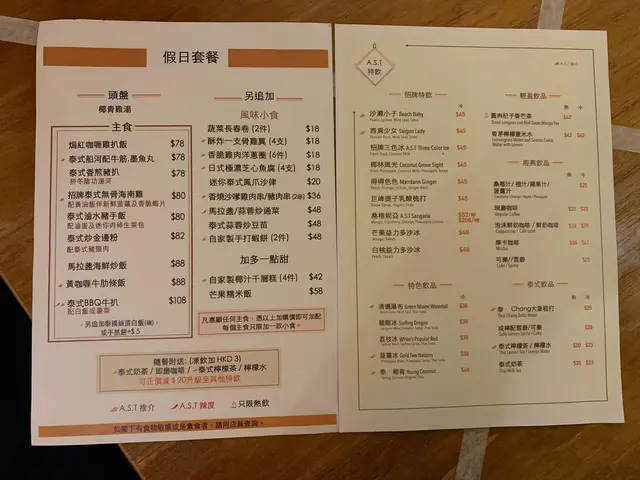 假日套餐
頭盤
椰青雞湯
主食
焗紅咖喱雞扒飯 $78
泰式船河配牛筋,墨魚丸 $78
泰式香煎豬扒 $78
拼冬陰功湯河
招牌泰式無骨海南雞 $80
泰式滷水豬手飯 $80
配滷蛋及迷你肉碎生菜包
泰式炒金邊粉 $82
配泰式豬頸肉
馬拉盞海鮮炒飯 $88
黃咖喱牛肋條飯 $88
泰式BBQ牛扒 $108
配白飯或薯菜
另追加
風味小食
蔬菜長春卷 (2件) $18
酥炸一支骨雞翼 (4支) $18
香脆雞肉洋蔥圈 (6件) $18
日式極濃芝心魚腐 (4支) $18
迷你泰式鳳爪沙律 $20
香燒沙嗲雞肉串/豬肉串 (2串) $36
馬拉盞/蒜蓉炒通菜 $48
泰式蒜蓉炒豆苗 $48
自家製手打蝦餅 (2件) $48
加多一點甜
自家製椰汁千層糕 (4件) $42
芒果糯米飯 $58
凡惠顧任何主食,憑以上加購價即可加配
每個主食只限加一款小食。
隨餐附送: (凍飲加 HKD 3)
泰式奶茶 / 即磨咖啡 / 泰式檸檬茶 / 檸檬水
可正價減$20升級至其他特飲
A.S.T 推介
A.S.T 辣度
只限熱飲
如閣下有食物敏感或是素食者,請向店員查詢。
A.S.T
特飲
A.S.T 推介
招牌特飲
沙灘小子 Beach Baby $45
西貢少女 Saigon Lady $45
招牌三色冰 A.S.T Three Color Ice $45
椰林風光 Coconut Grove Sight $45
得得色色 Mandarin Ginger $45
巨峰提子乳酸梳打 $48
桑格妮亞 A.S.T Sangaria
芒果益力多沙冰 $48
白桃益力多沙冰 $48
特色飲品
清邁瀑布 Green Miami Waterfall $38
龍眼冰 Surfing Dragon $38
荔枝冰 White's Popular Red $38
菠蘿冰 Gold Two Nations $38
泰・椰青 Young Coconut $48
輕盈飲品
圓肉杞子香芒茶 $42
香茅檸檬薏米水 $42 $42
經典飲品
桑莓汁 / 橙汁 / 蘋果汁 /
菠蘿汁
齋嘉咖啡
Regular Coffee
泡沫鮮奶咖啡 / 鮮奶咖啡
Cappuccino / Cafe Latte
摩卡咖啡
Mocha
可樂 / 雪碧
Coke / Sprite
泰式飲品
泰・Chang大象梳打 $25
Thai Chang Soda Water
泰式檸檬茶 / 檸檬水 $20 $25
Thai Lemon Tea / Lemon Water
泰式奶茶
Thai Milk Tea